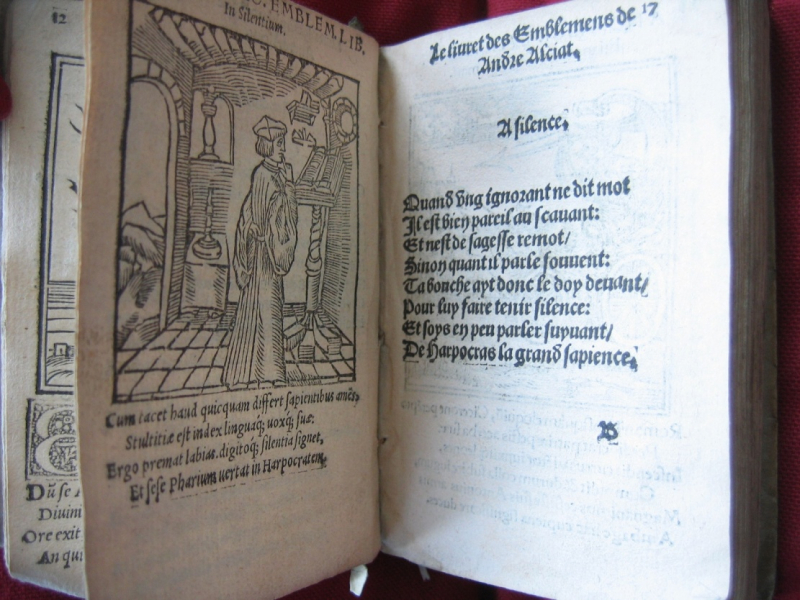 12
EMBLEM. LIB.
In Silentium.
Cum tacet haud quicquam differt sapientibus amēs,
Stultitiæ est index linguaq; uoxq; suæ.
Ergo premat labias, digitoq; silentia signet,
Et sese Pharium uertat in Harpocratem.
Dū se
Diuini
Ore exit
An qu
Le liuret des Emblemens de 17
Andre Alciat.
A silence.
Quand vng ignorant ne dit mot
Il est bien pareil au scauant:
Et nest de sagesse remot/
Sinon quant il parle souuent:
Ta bouche ayt donc le doy deuant/
Pour luy faire tenir silence:
Et soys en peu parler suyuant/
De Harpocras la grand sapience.
B